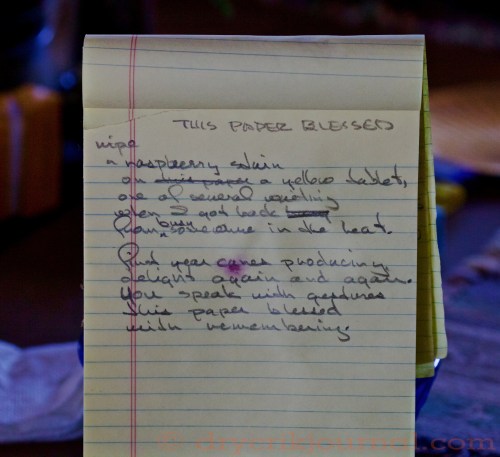 THIS PAPER BLESSED
ripe
a raspberry stain
on this paper a yellow tablet,
one of several waiting
when I got back
from in the heat.
First year canes producing
delight again and again.
You speak with gestures
this paper blessed
with remembering.
© drycrikjournal.com